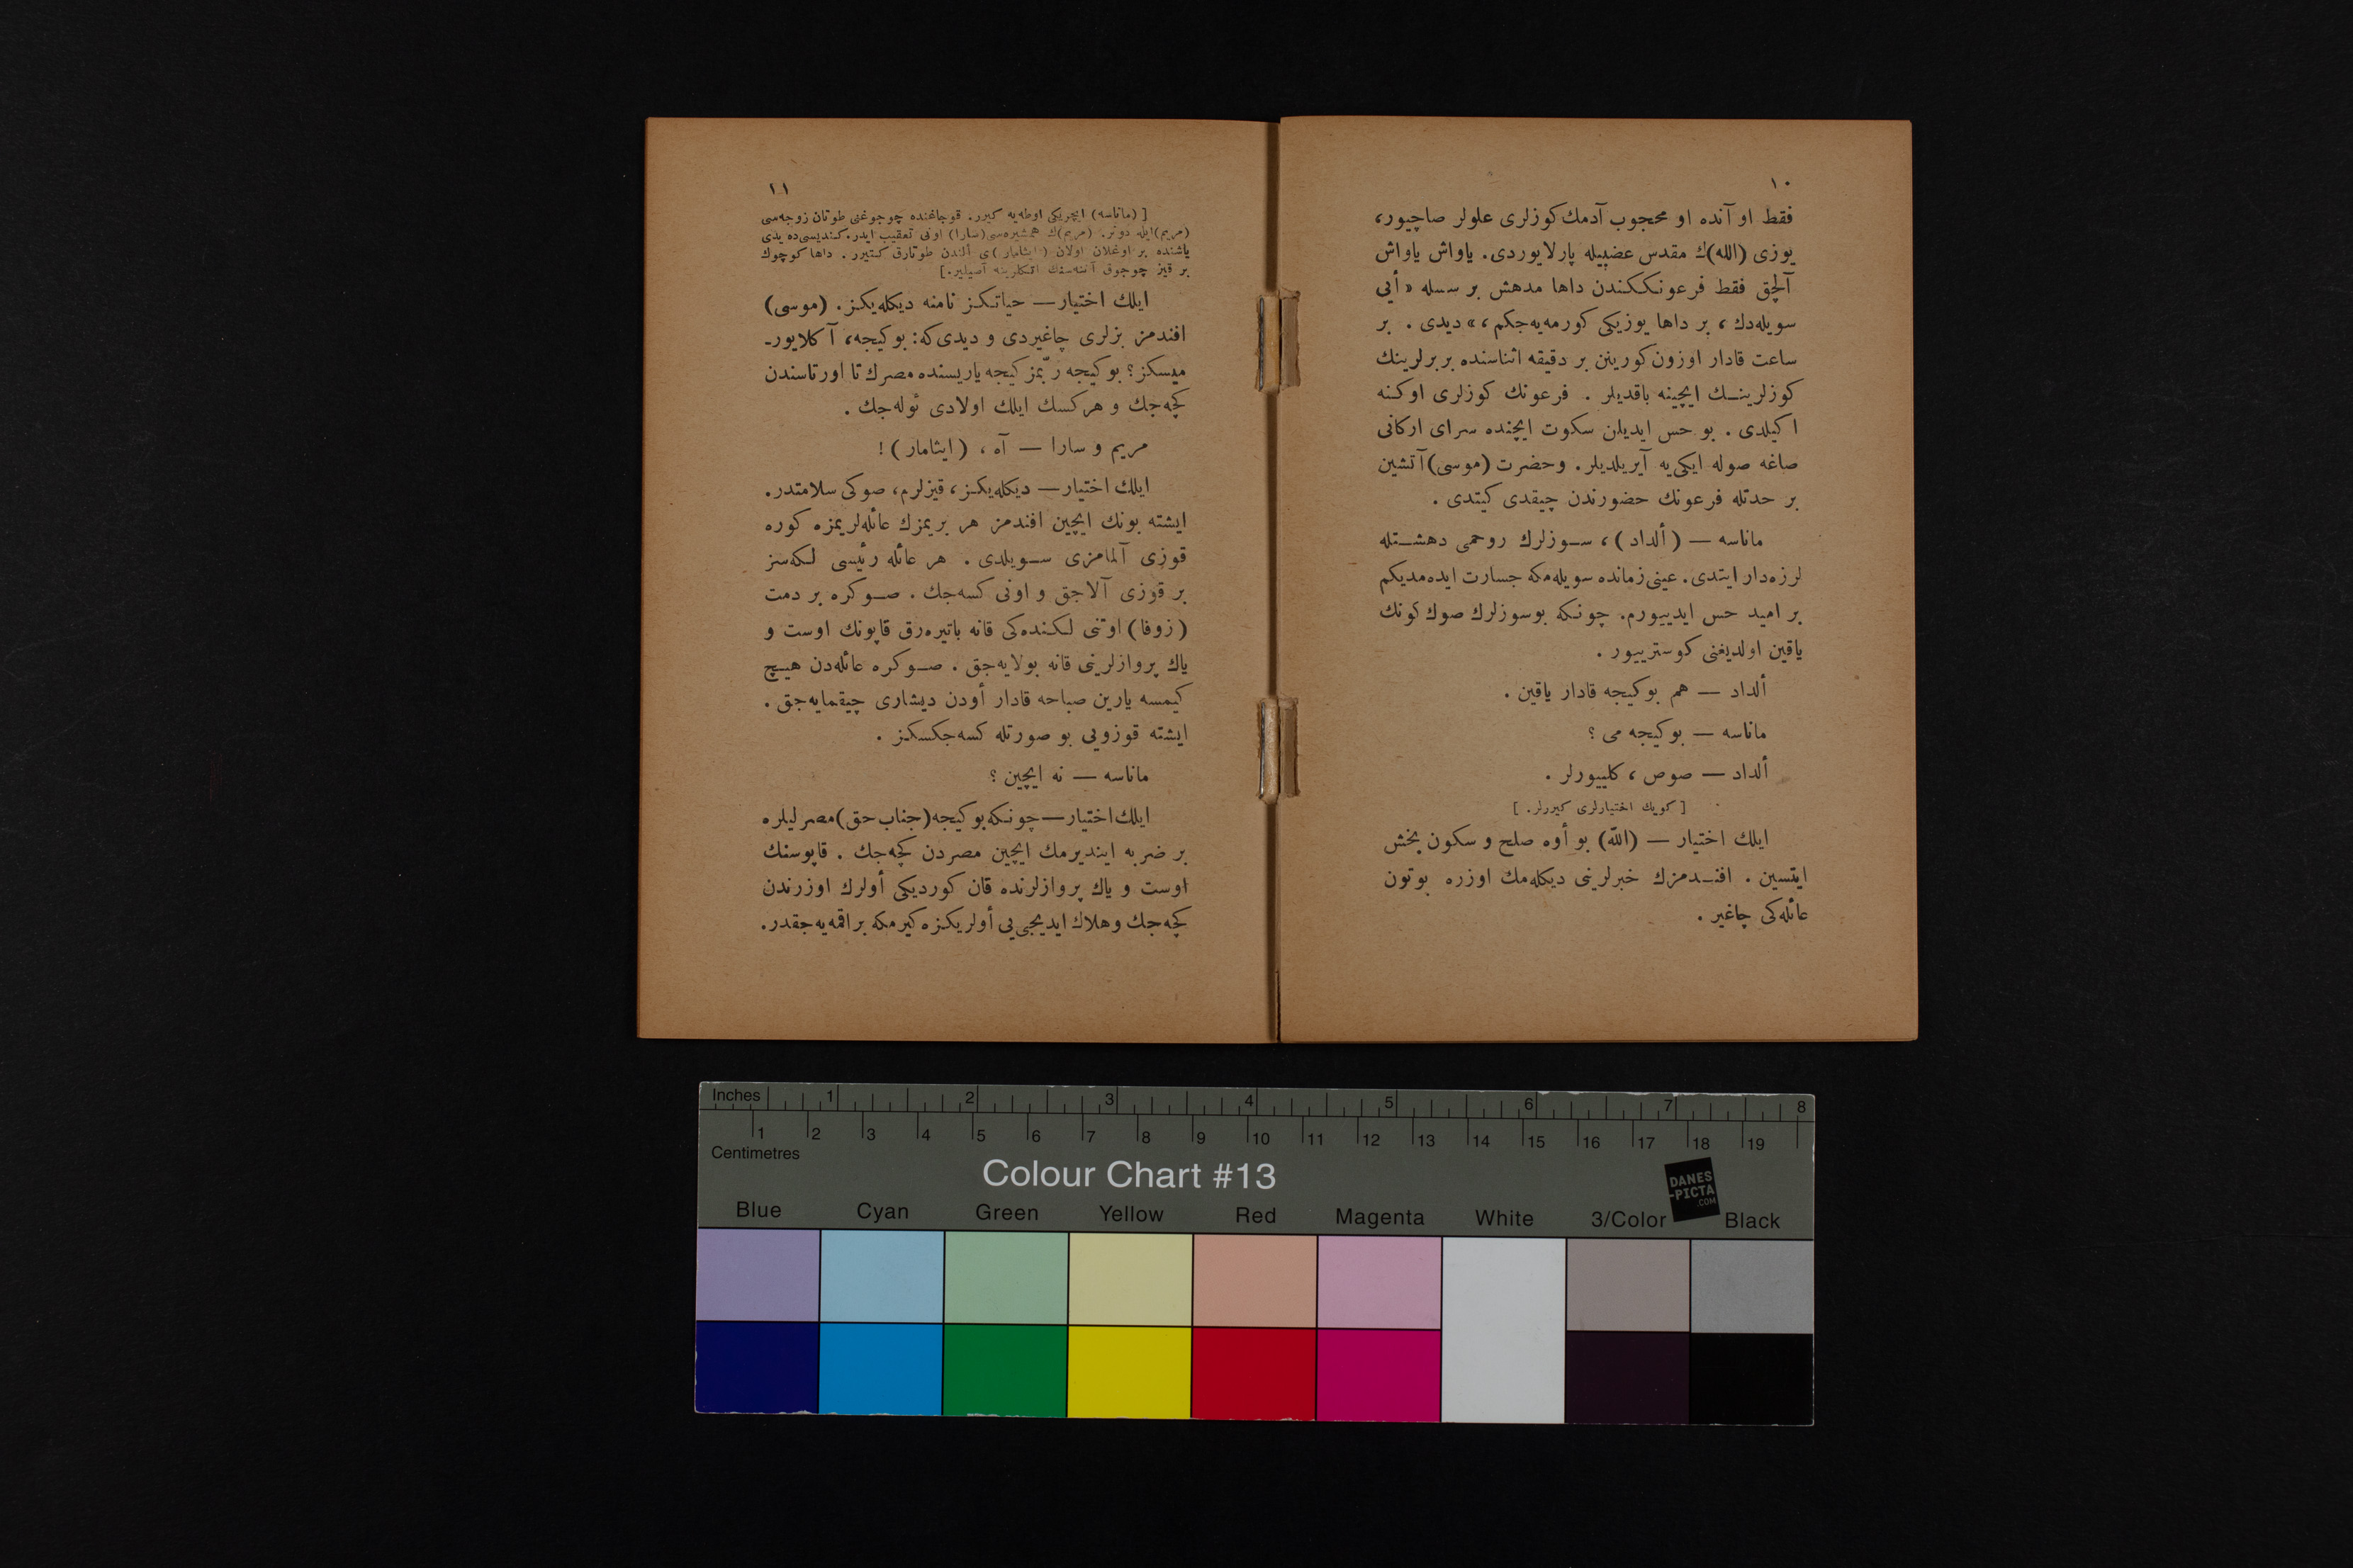 ١٠
فقط او آنده او محجوب آدمك كوزلری علولر صاچیور،
یوزی (الله)ك مقدس عضبیله پارلایوردی. یاواش یاواش
آلچق فقط فرعونككندن داها مدهش بر سسله « أیی
سویله‌دك ، بر داها یوزیكی كورمه‌یه‌جكم ، » دیدی . بر
ساعت قادار اوزون كورینن بر دقیقه اثناسنده بربرلرینك
كوزلرینك ایچینه باقدیلر . فرعونك كوزلری اوكنه
اكیلدی . بو حس ایدیلن سكوت ایچنده سرای اركانی
صاغه صوله ایكی‌یه آیریلدیلر. وحضرت (موسی) آتشین
بر حدتله فرعونك حضورندن چیقدی كیتدی .
ماناسه — (ألداد) ، سوزلرك روحمی دهشتله
لرزه‌دار ایتدی. عینی زمانده سویله‌مكه جسارت ایده‌مدیكم
بر امید حس ایدییورم. چونكه بوسوزلرك صوك كونك
یاقین اولدیغنی كوسترییور .
ألداد — هم بوكیجه قادار یاقین .
ماناسه — بوكیجه می ؟
ألداد — صوص ، كلییورلر .
[ كویك اختیارلری كیررلر. ]
ایلك اختیار — (الله) بو أوه صلح و سكون بخش
ایتسین . افندمزك خبرلرینی دیكله‌مك اوزره بوتون
عائله‌كی چاغیر .
١١
[ (ماناسه) ایچریكی اوطه‌یه كیرر. قوجاغنده چوجوغنی طوتان زوجه‌سی
(مریم) ایله دونر. (مریم)ك همشیره‌سی (سارا) اونی تعقیب ایدر. كندیسی‌ده یدی
یاشنده بر اوغلان اولان (ایثامار)ی ألندن طوتارق كتیرر . داها كوچوك
بر قیز چوجوق آننه‌سنك اتكلرینه آصیلیر.]
ایلك اختیار — حیاتكز نامنه دیكله‌یكز . (موسی)
افندمز بزلری چاغیردی و دیدی كه: بوكیجه، آكلایور-
میسكز؟ بوكیجه ربّمز كیجه یاریسنده مصرك تا اورتاسندن
كچه‌جك و هركسك ایلك اولادی ئوله‌جك .
مریم و سارا — آه ، (ایثامار) !
ایلك اختیار — دیكله‌یكز ، قیزلرم، صوكی سلامتدر.
ایشته بونك ایچین افندمز هر بریمزك عائله‌لریمزه كوره
قوزی آلمامزی سویلدی . هر عائله رئیسی لكه‌سز
بر قوزی آلاجق و اونی كسه‌جك . صوكره بر دمت
(زوفا) اوتنی لكنده‌كی قانه باتیره‌رق قاپونك اوست و
یاك پروازلرینی قانه بولایه‌جق . صوكره عائله‌دن هیچ
كیمسه یارین صباحه قادار أودن دیشاری چیقمایه‌جق .
ایشته قوزویی بو صورتله كسه‌جكسكز .
ماناسه — نه ایچین ؟
ایلك اختیار — چونكه بوكیجه (جناب حق) مصرلیلره
بر ضربه ایندیرمك ایچین مصردن كچه‌جك . قاپوسنك
اوست و یاك پروازلرنده قان كوردیكی أولرك اوزرندن
كچه‌جك و هلاك ایدیجی‌یی أولریكزه كیرمكه براقمه‌یه‌جقدر.
Inches 1 2 3 4 5 6 7 8
1 2 3 4 5 6 7 8 9 10 11 12 13 14 15 16 17 18 19
Centimetres
Colour Chart #13
DANES
-PICTA
.COM
Blue Cyan Green Yellow Red Magenta White 3/Color Black